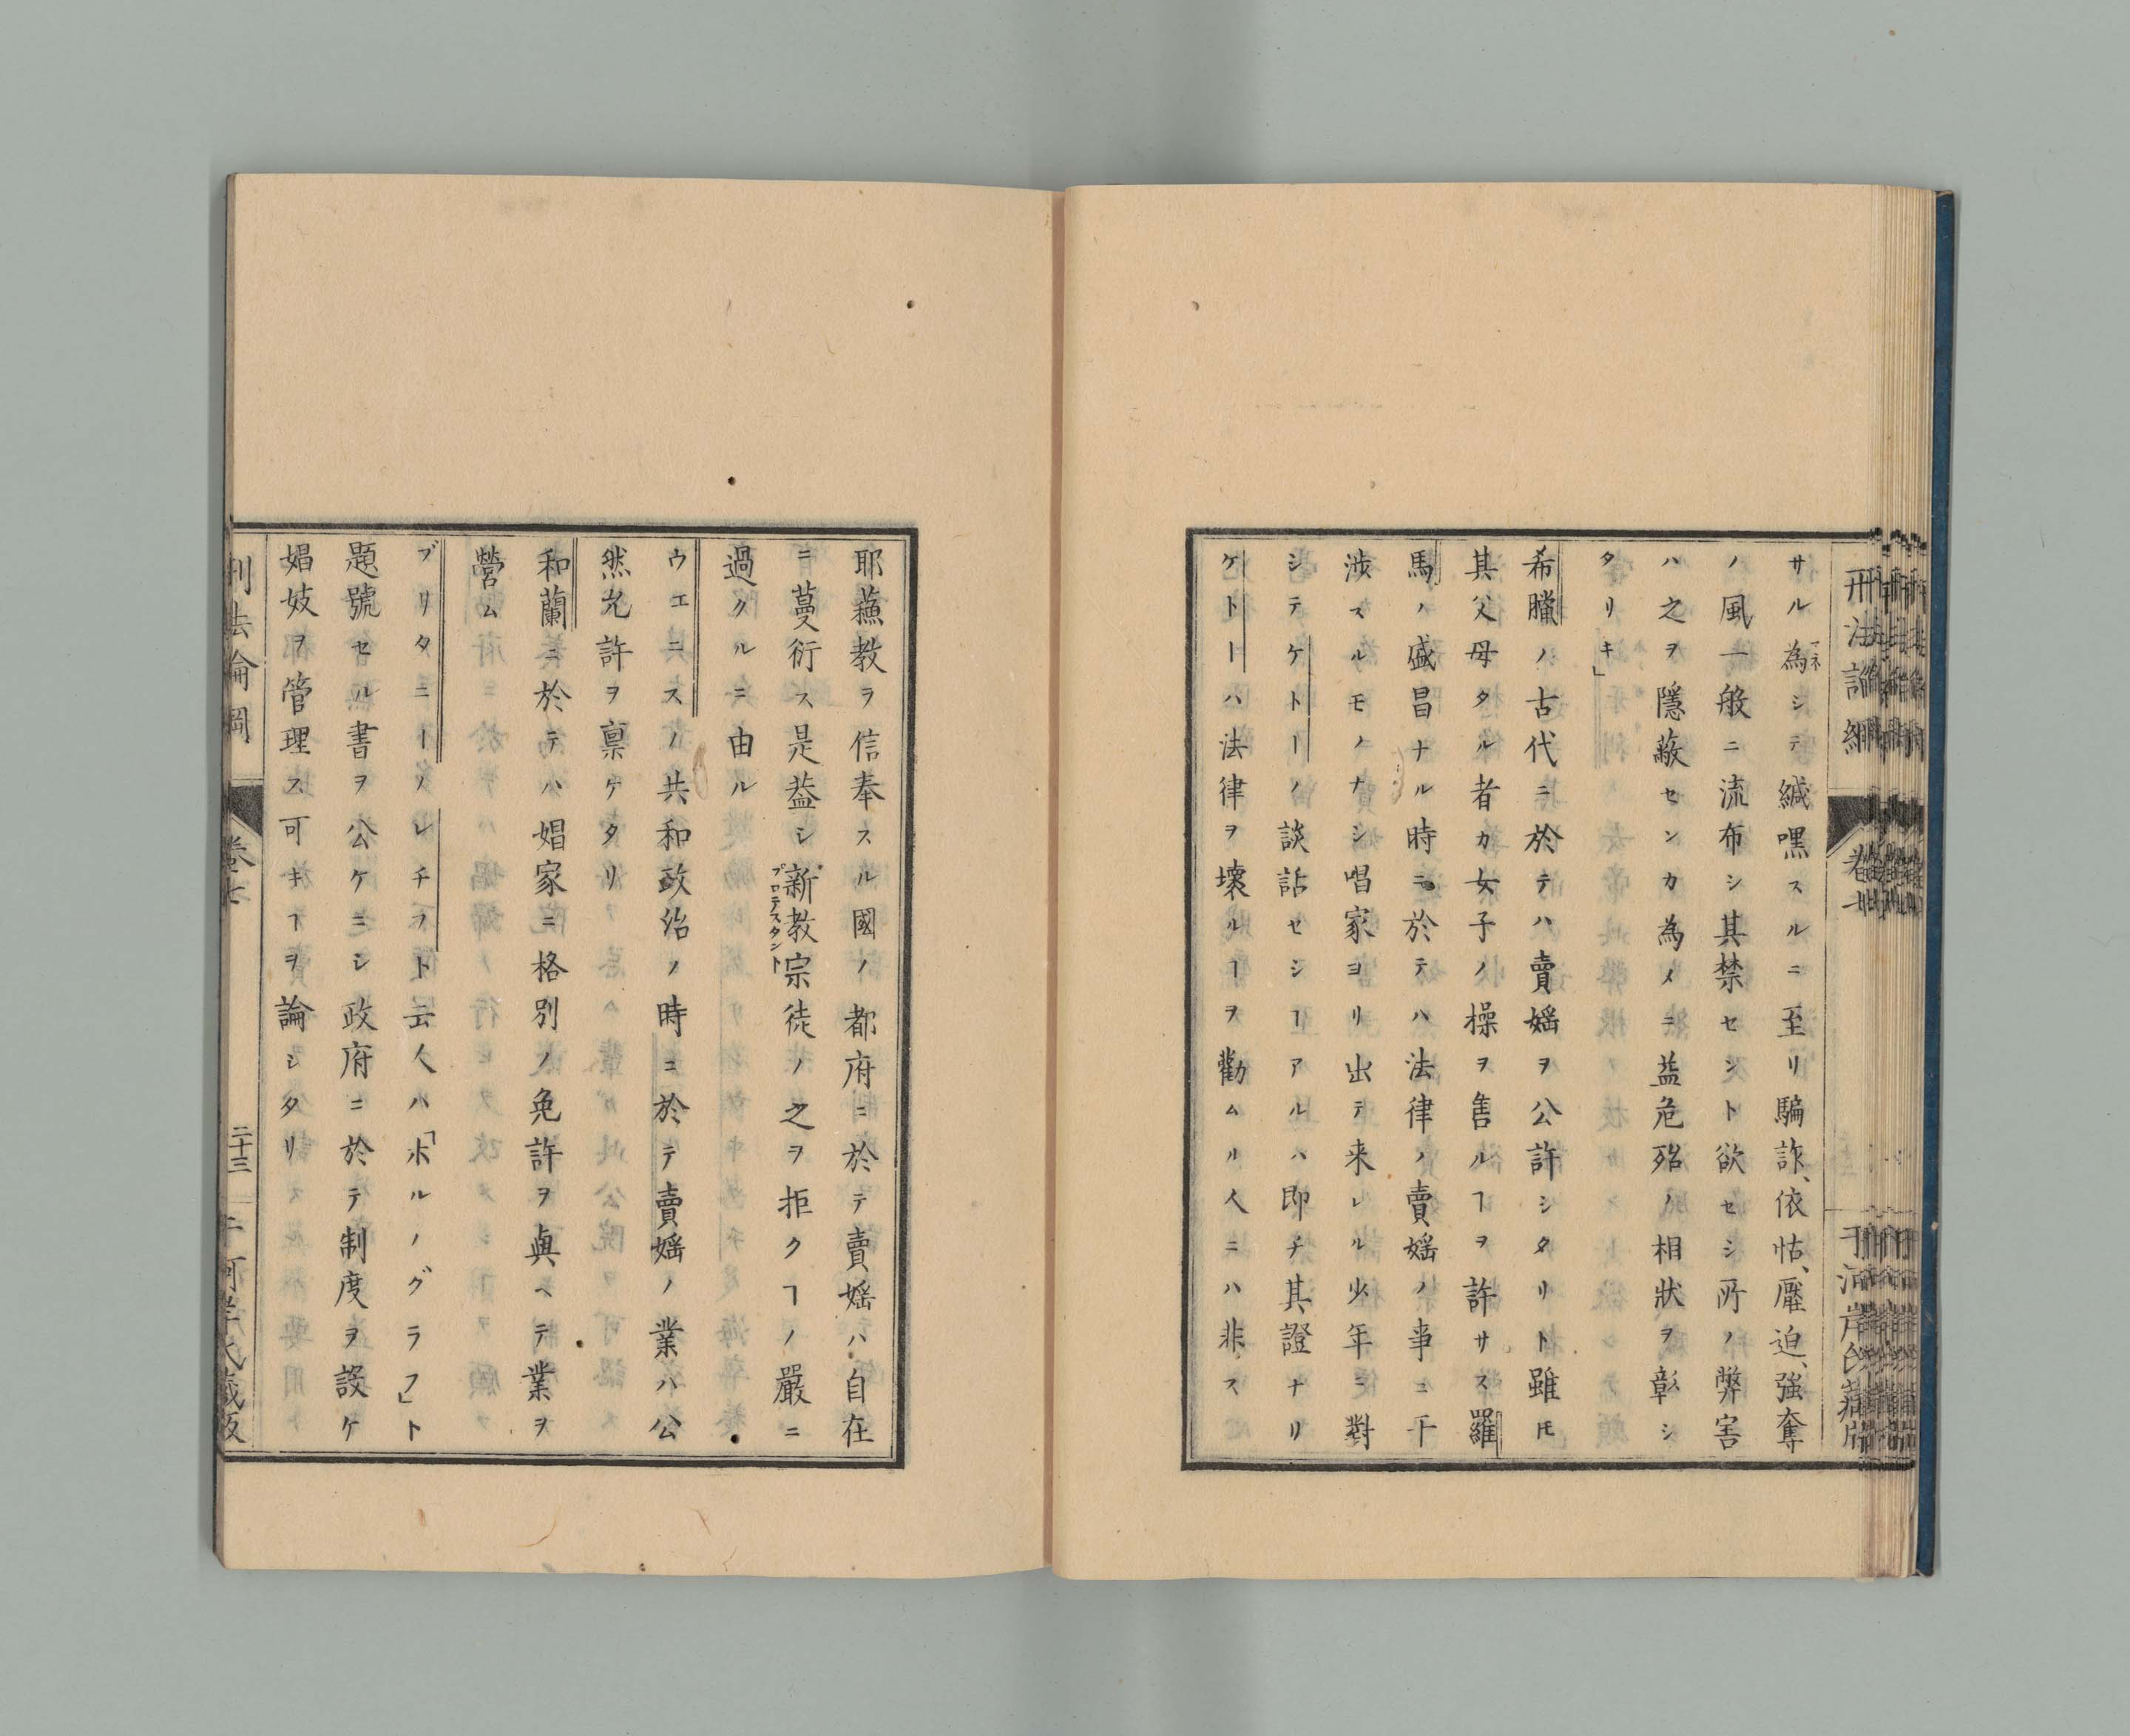 サル為シテ緘嘿スルニ至リ騙詐、依怙、壓迫、強奪
マネ
ノ風一般ニ流布シ其禁セシト欲セシ所ノ弊害
ハ之ヲ隱蔽セシカ為メニ益危殆ノ相狀ヲ彰シ
タリキ」
希臘ノ古代ニ於テハ賣婬ヲ公許シタリト雖𪜈
其父母タル者カ女子ノ操ヲ售ルヿヲ許サス羅
馬ノ盛昌ナル時ニ於テハ法律ノ賣婬ノ事ニ干
渉スルモノナシ唱家ヨリ出テ来レル少年ニ對
シテケトーノ談話セシヿアルハ即チ其證ナリ
ケトーハ法律ヲ壞ルヿヲ勸ムル人ニハ非ス
耶蘓教ヲ信奉スル國ノ都府ニ於テ賣婬ハ自在
ニ蔓衍ス是葢シ新教宗徒ノ之ヲ拒クヿノ嚴ニ
プロテスタント
過クルニ由ル
ウエニスノ共和政治ノ時ニ於テ賣婬ノ業ハ公
然允許ヲ禀ケタリ
和蘭ニ於テハ娼家ニ格別ノ免許ヲ與ヘテ業ヲ
營ム
ブリタニーノレチフト云人ハ「ホルノグラフ」ト
題號セル書ヲ公ケニシ政府ニ於テ制度ヲ設ケ
娼妓ヲ管理ス可キヿヲ論シタリ
刑法論綱
卷七
二十三
何禮之藏版